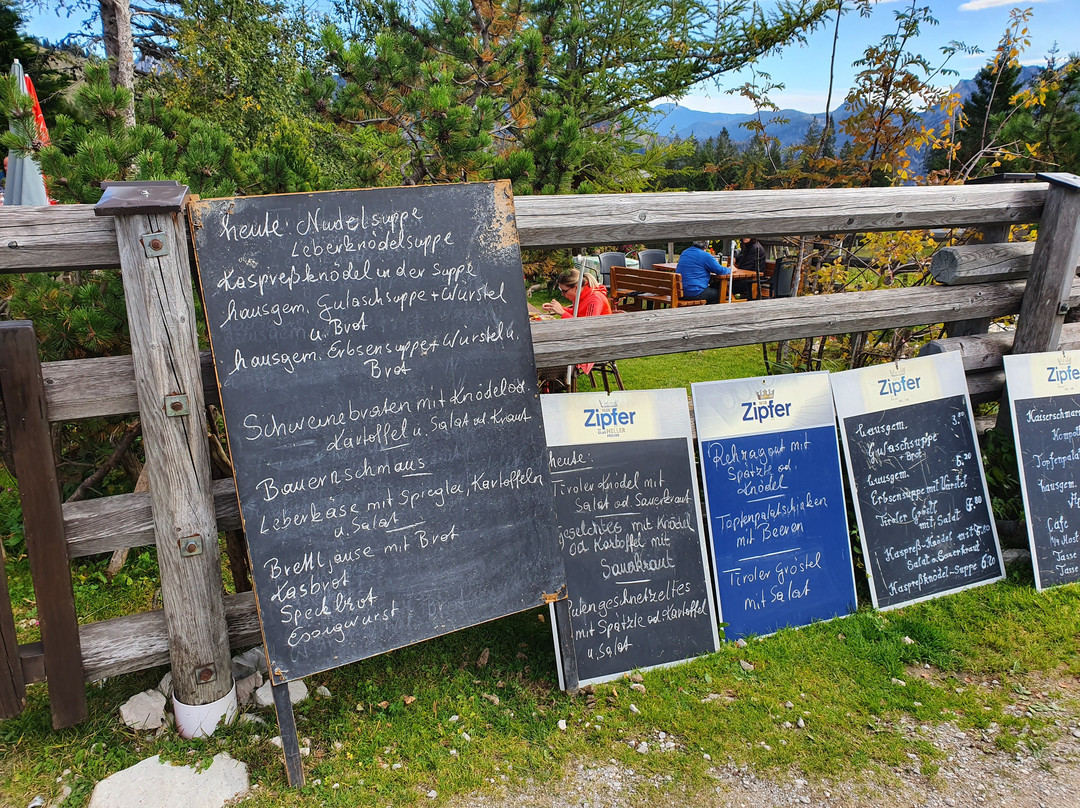 heute: Nudelsuppe
Leberknödelsuppe
Kaspreßknödel in der suppe
hausgem. Gulaschsuppe + Würstel
u. Brot
hausgem. Erbsensuppe + Würstel u.
Brot
Schweinebraten mit Knödel od.
Kartoffel u. Salat od. Kraut
Bauernschmaus
Leberkäse mit Spieglei, Kartoffeln
u. Salat
Brettljause mit Brot
Kasbrot
Speckbrot
Essigwurst
Zipfer
HELLER
heute:
Tiroler Knödel mit
Salat od. Sauerkraut
geselchtes mit Knödel
od Kartoffel mit
Sauerkraut
Putengeschnetzeltes
mit Spätzle od. Kartoffel
u. Salat
Zipfer
Rehragout mit
Spätzle od.
Knödel
Topfenpalatschinken
mit Beeren
Tiroler Gröstel
mit Salat
Zipfer
Hausgem.
Gulaschsuppe
+ Brot
Hausgem.
Erbsensuppe mit Würstel
Tiroler Gröstl
mit Salat
Kaspreß-Knödel mit
Salat od Sauerkraut
Kaspreßknödel-Suppe
Zipfer
Kaiserschmarrn
Kompott
Topfenpalat
hausgem.
Cafe
1/4 Most
Tasse
Tasse